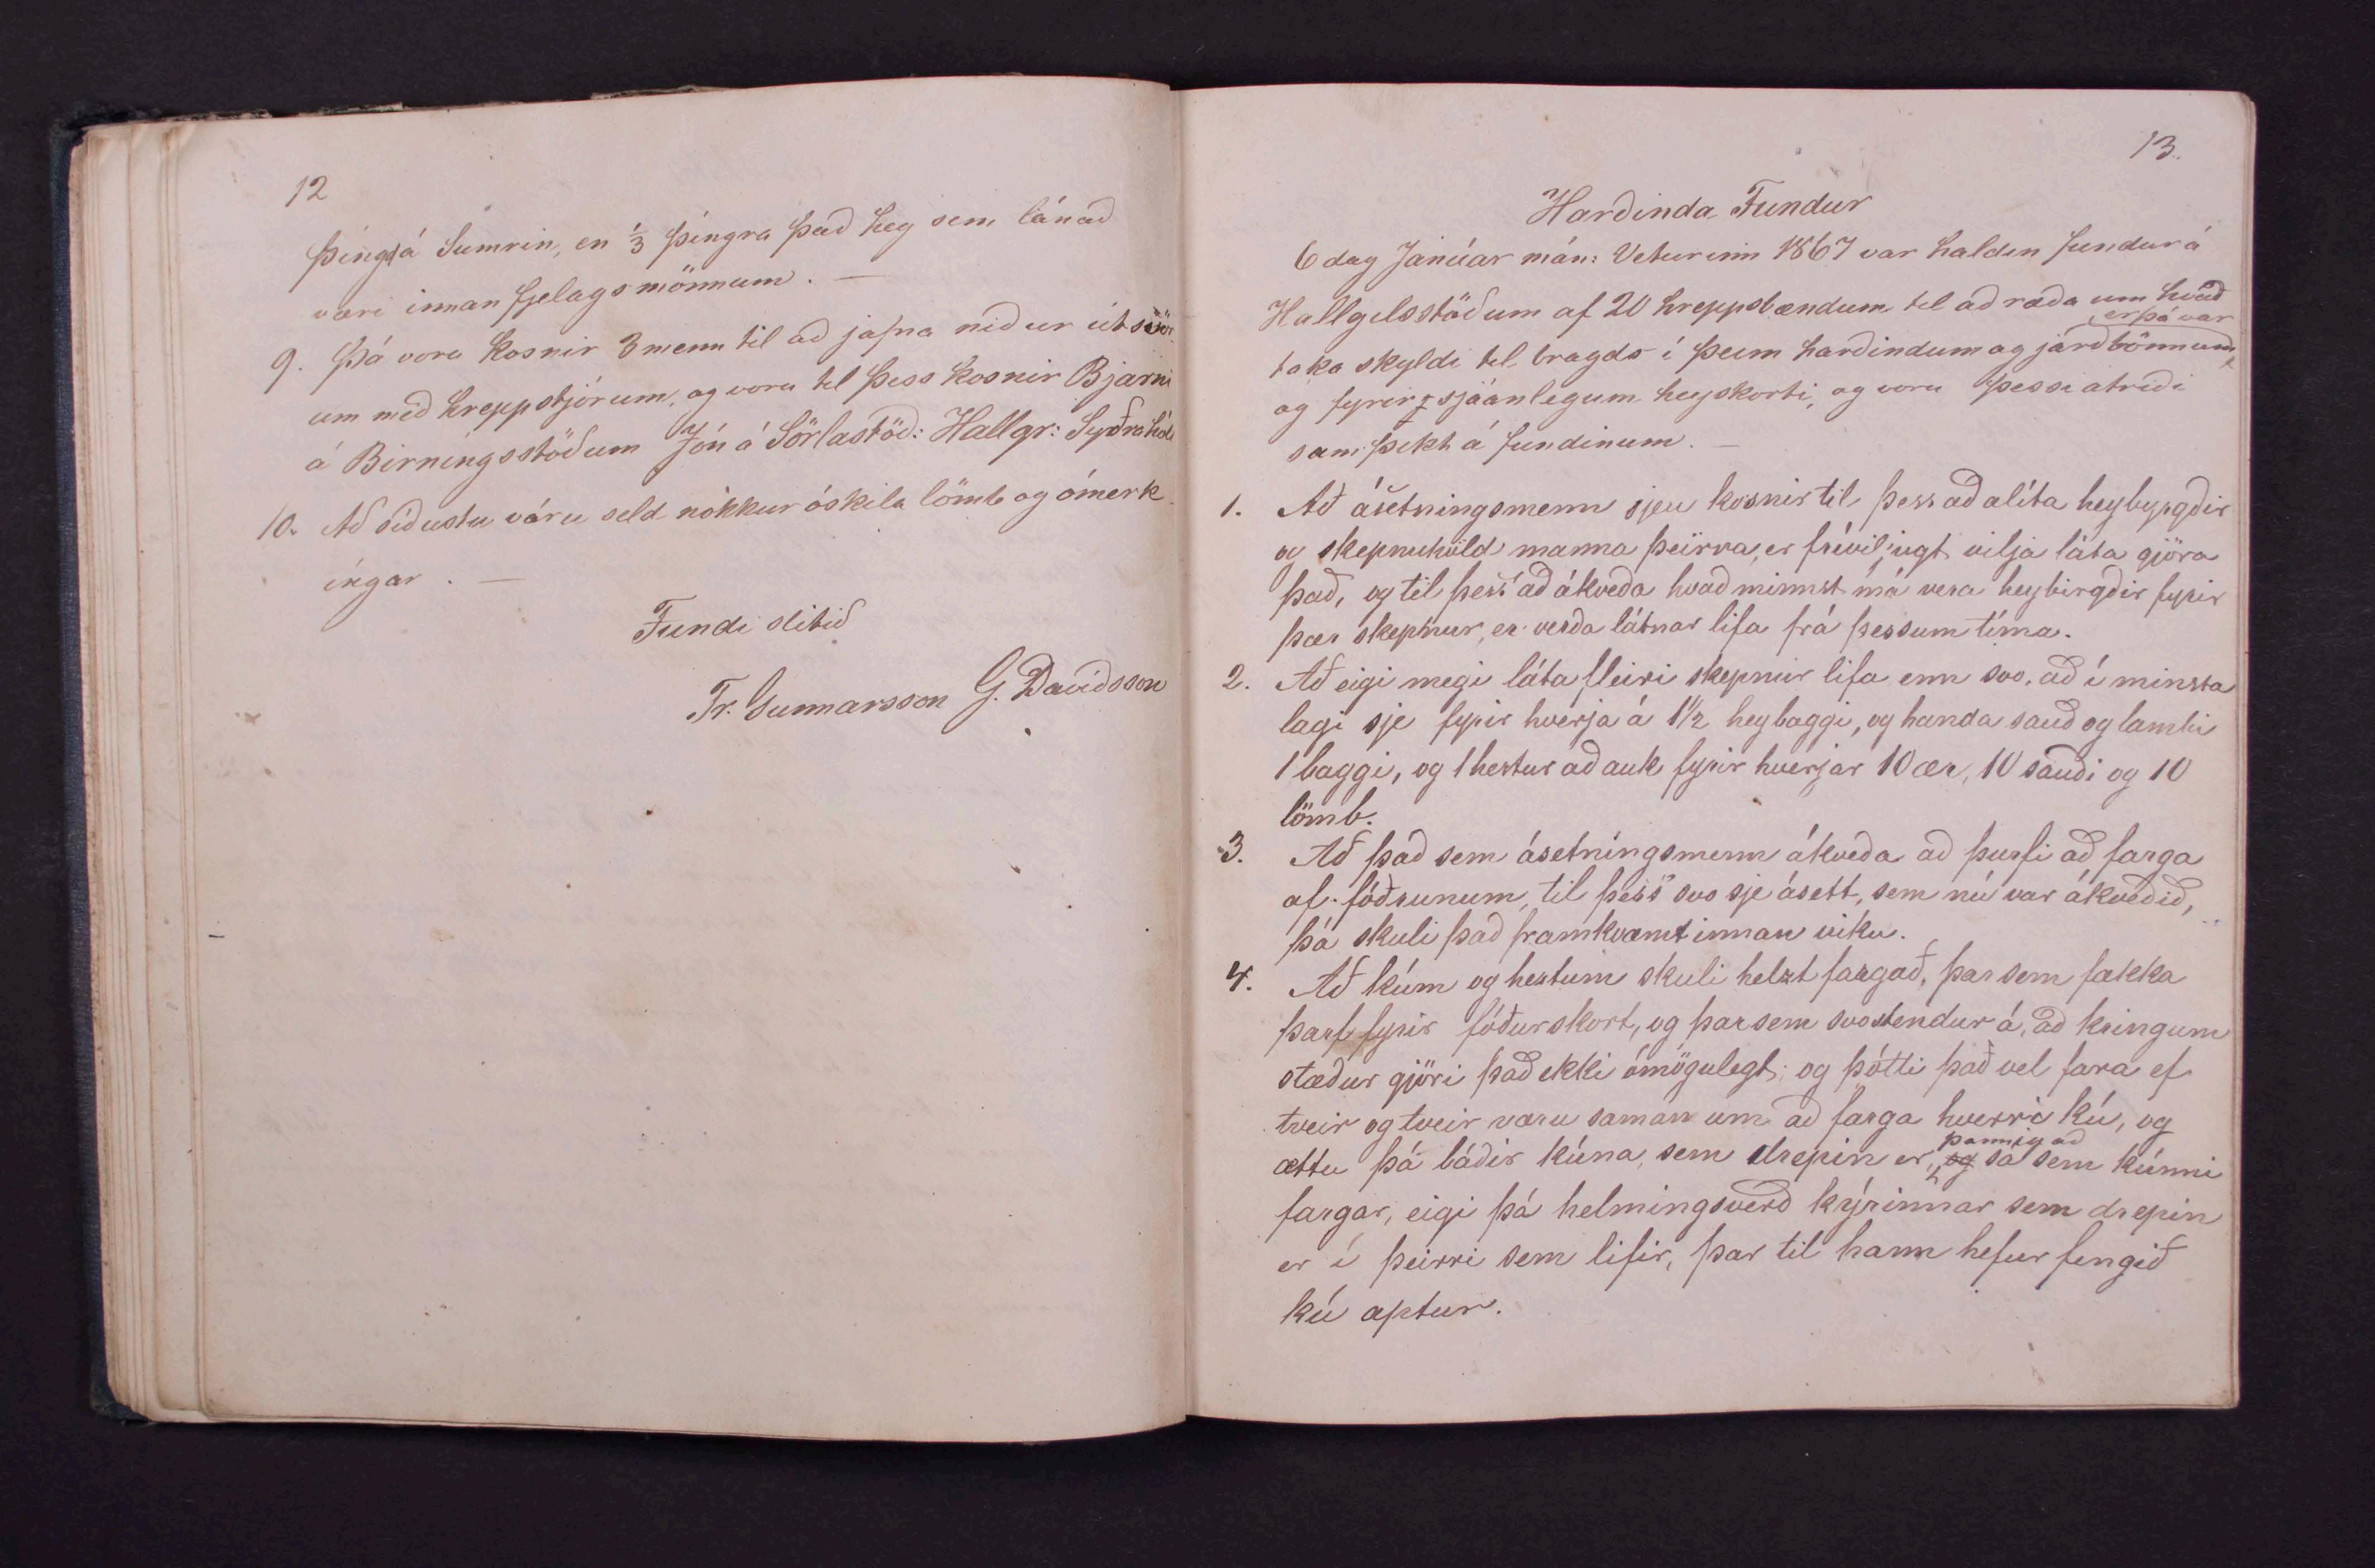 12
þingd á Sumrin, en 1/3 þingra það hey sem lánað
væri innan fjelagsmönnum. —
9. Þá voru kosnir 3 menn til að jafna niður útsvör-
um með hreppstjórum, og voru til þess kosnir Bjarni
á Birningsstöðum Jón á Sörlastöð: Hallgr: Syðrahóli
10. Að síðustu váru seld nokkur óskila lömb og ómerk-
ingar. —
Fundi slitið
Tr. Gunnarsson G. Davíðsson
13.
Harðinda Fundur
6 dag Janúar mán: Veturinn 1867 var haldin fundur á
Hallgilsstöðum af 20 hreppsbændum til að ræða um hvað
er þá var
taka skyldi til bragds í þeim harðindum og jarðbönnum
og fyrirsjáanlegum heyskorti, og voru þessi atriði
samþikt á fundinum. —
1. Að ásetningsmenn sjeu kosnir til þess að alíta heybyrgðir
og skepnuhöld manna þeirra, er fríviljugt vilja láta gjöra
það, og til þess að ákveða hvað minnst má vera heybirgðir fyrir
þær skepnur, er verða látnar lifa frá þessum tíma.
2. Að eigi megi láta fleiri skepnur lifa enn svo, að í minsta
lagi sje fyrir hverja á 1 1/2 heybaggi, og handa sauð og lambi
1 baggi, og 1 hestur að auk fyrir hverjar 10 ær, 10 sauði og 10
lömb.
3. Að það sem ásetningsmenn ákveða að þurfi að farga
af fóðrunum, til þess svo sje ásett, sem nú var ákveðið,
þá skuli það framkvæmt innan viku.
4. Að kúm og hestum skuli helzt fargað, þar sem fækka
þarf fyrir fóðurskort, og þar sem svo stendur á, að kringum
stæður gjöri það ekki ómögulegt; og þótti það vel fara ef
tveir og tveir væru saman um að farga hverri kú, og
þannig að
ættu þá báðir kúna, sem drepin er, og sá sem kúnni
fargar, eigi þá helmingsverð kýrinnar sem drepin
er í þeirri sem lifir, þar til hann hefur fengið
kú aptur.